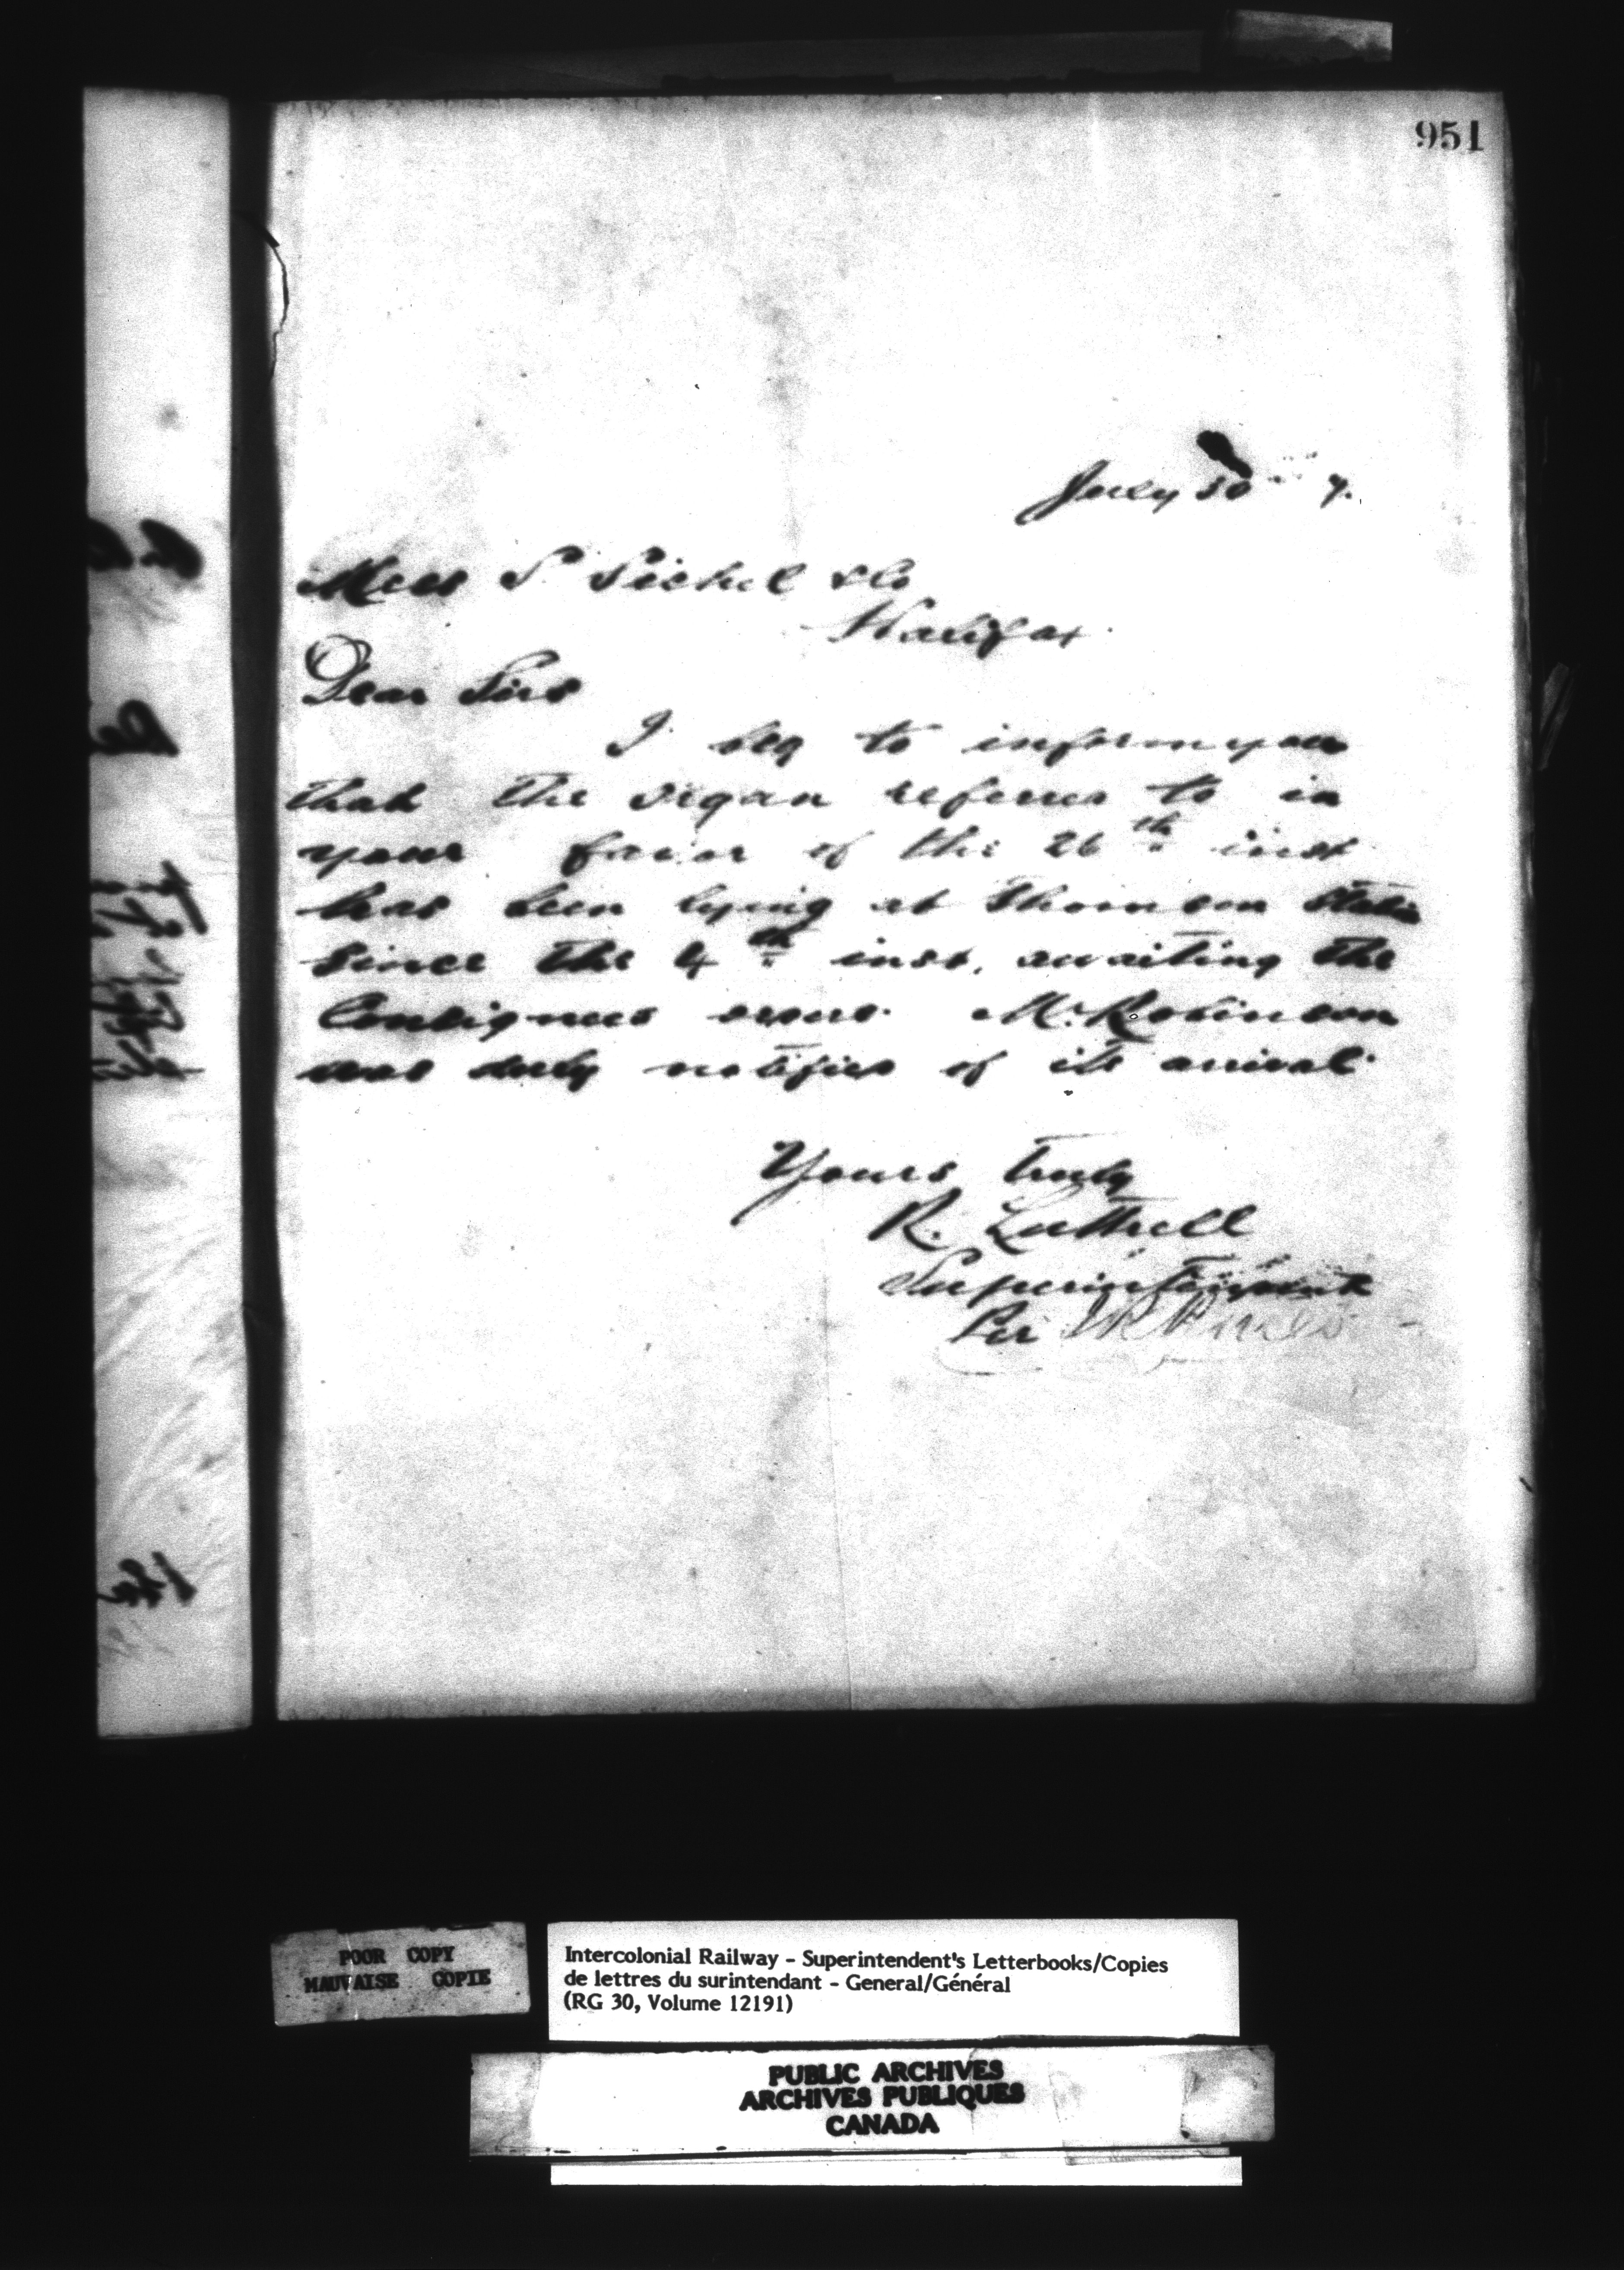 951
July 30 7.
Mess S Sichel & Co
Halifax.
Dear Sirs
I beg to inform you
that the organ referred to in
your favor of the 26th inst
has been lying at Thomson Station
since the 4th inst, awaiting the
Consignees orders. Mr. Robinson
was duly notified of its arrival.
Yours truly
R. Luttrell
Superintendent
Per
POOR COPY
MAUVAISE COPIE
Intercolonial Railway - Superintendent's Letterbooks/Copies
de lettres du surintendant - General/Général
(RG 30, Volume 12191)
PUBLIC ARCHIVES
ARCHIVES PUBLIQUES
CANADA